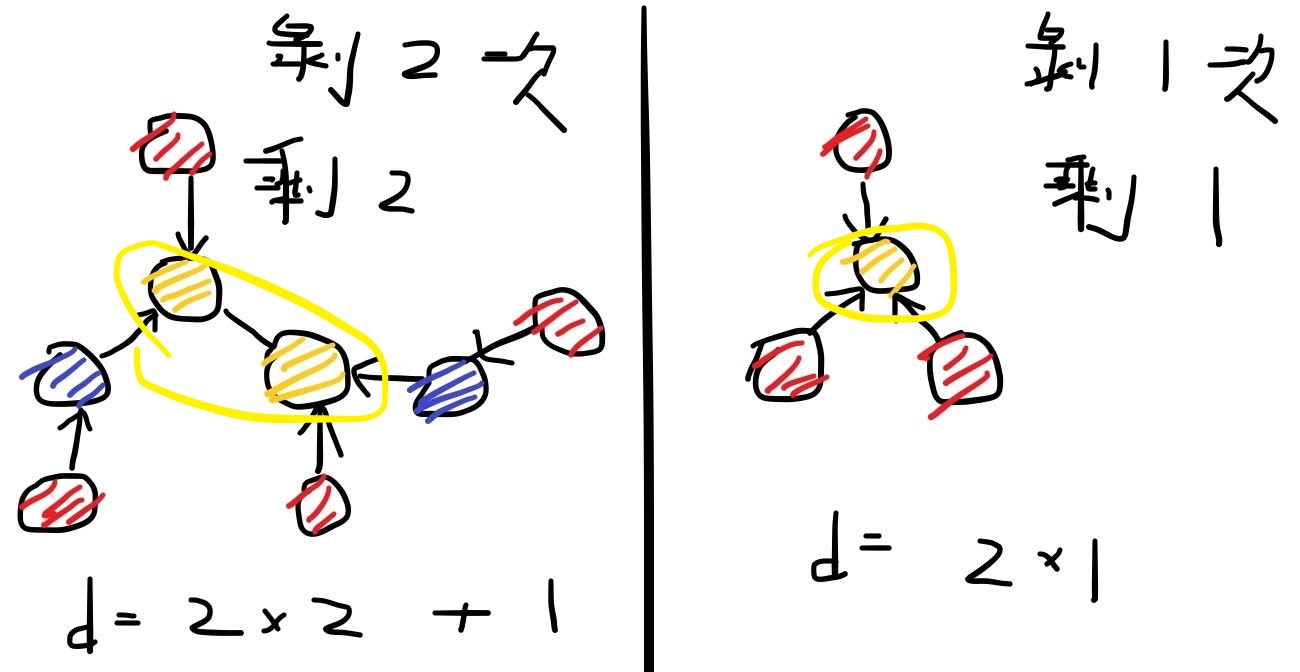 剝 2 次
剩 2
d = 2 × 2 + 1
剝 1 次
剩 1
d = 2 × 1